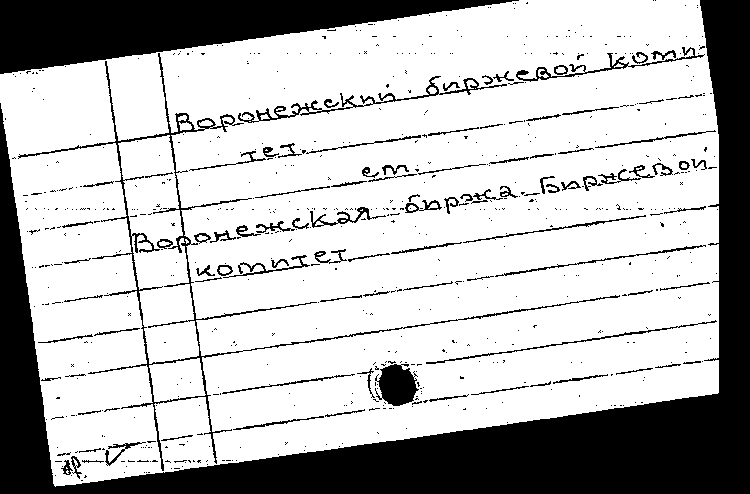 Воронежский биржевой коми-
тет.
см.
Воронежская биржа. Биржевой
комитет